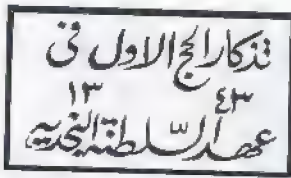 تذكار الحج الاول فى
١٣ ٤٣
عهد السلطنة النجدية